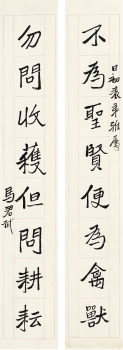 不為聖賢便為禽獸
日初表弟雅屬
勿問收穫但問耕耘
馬君武